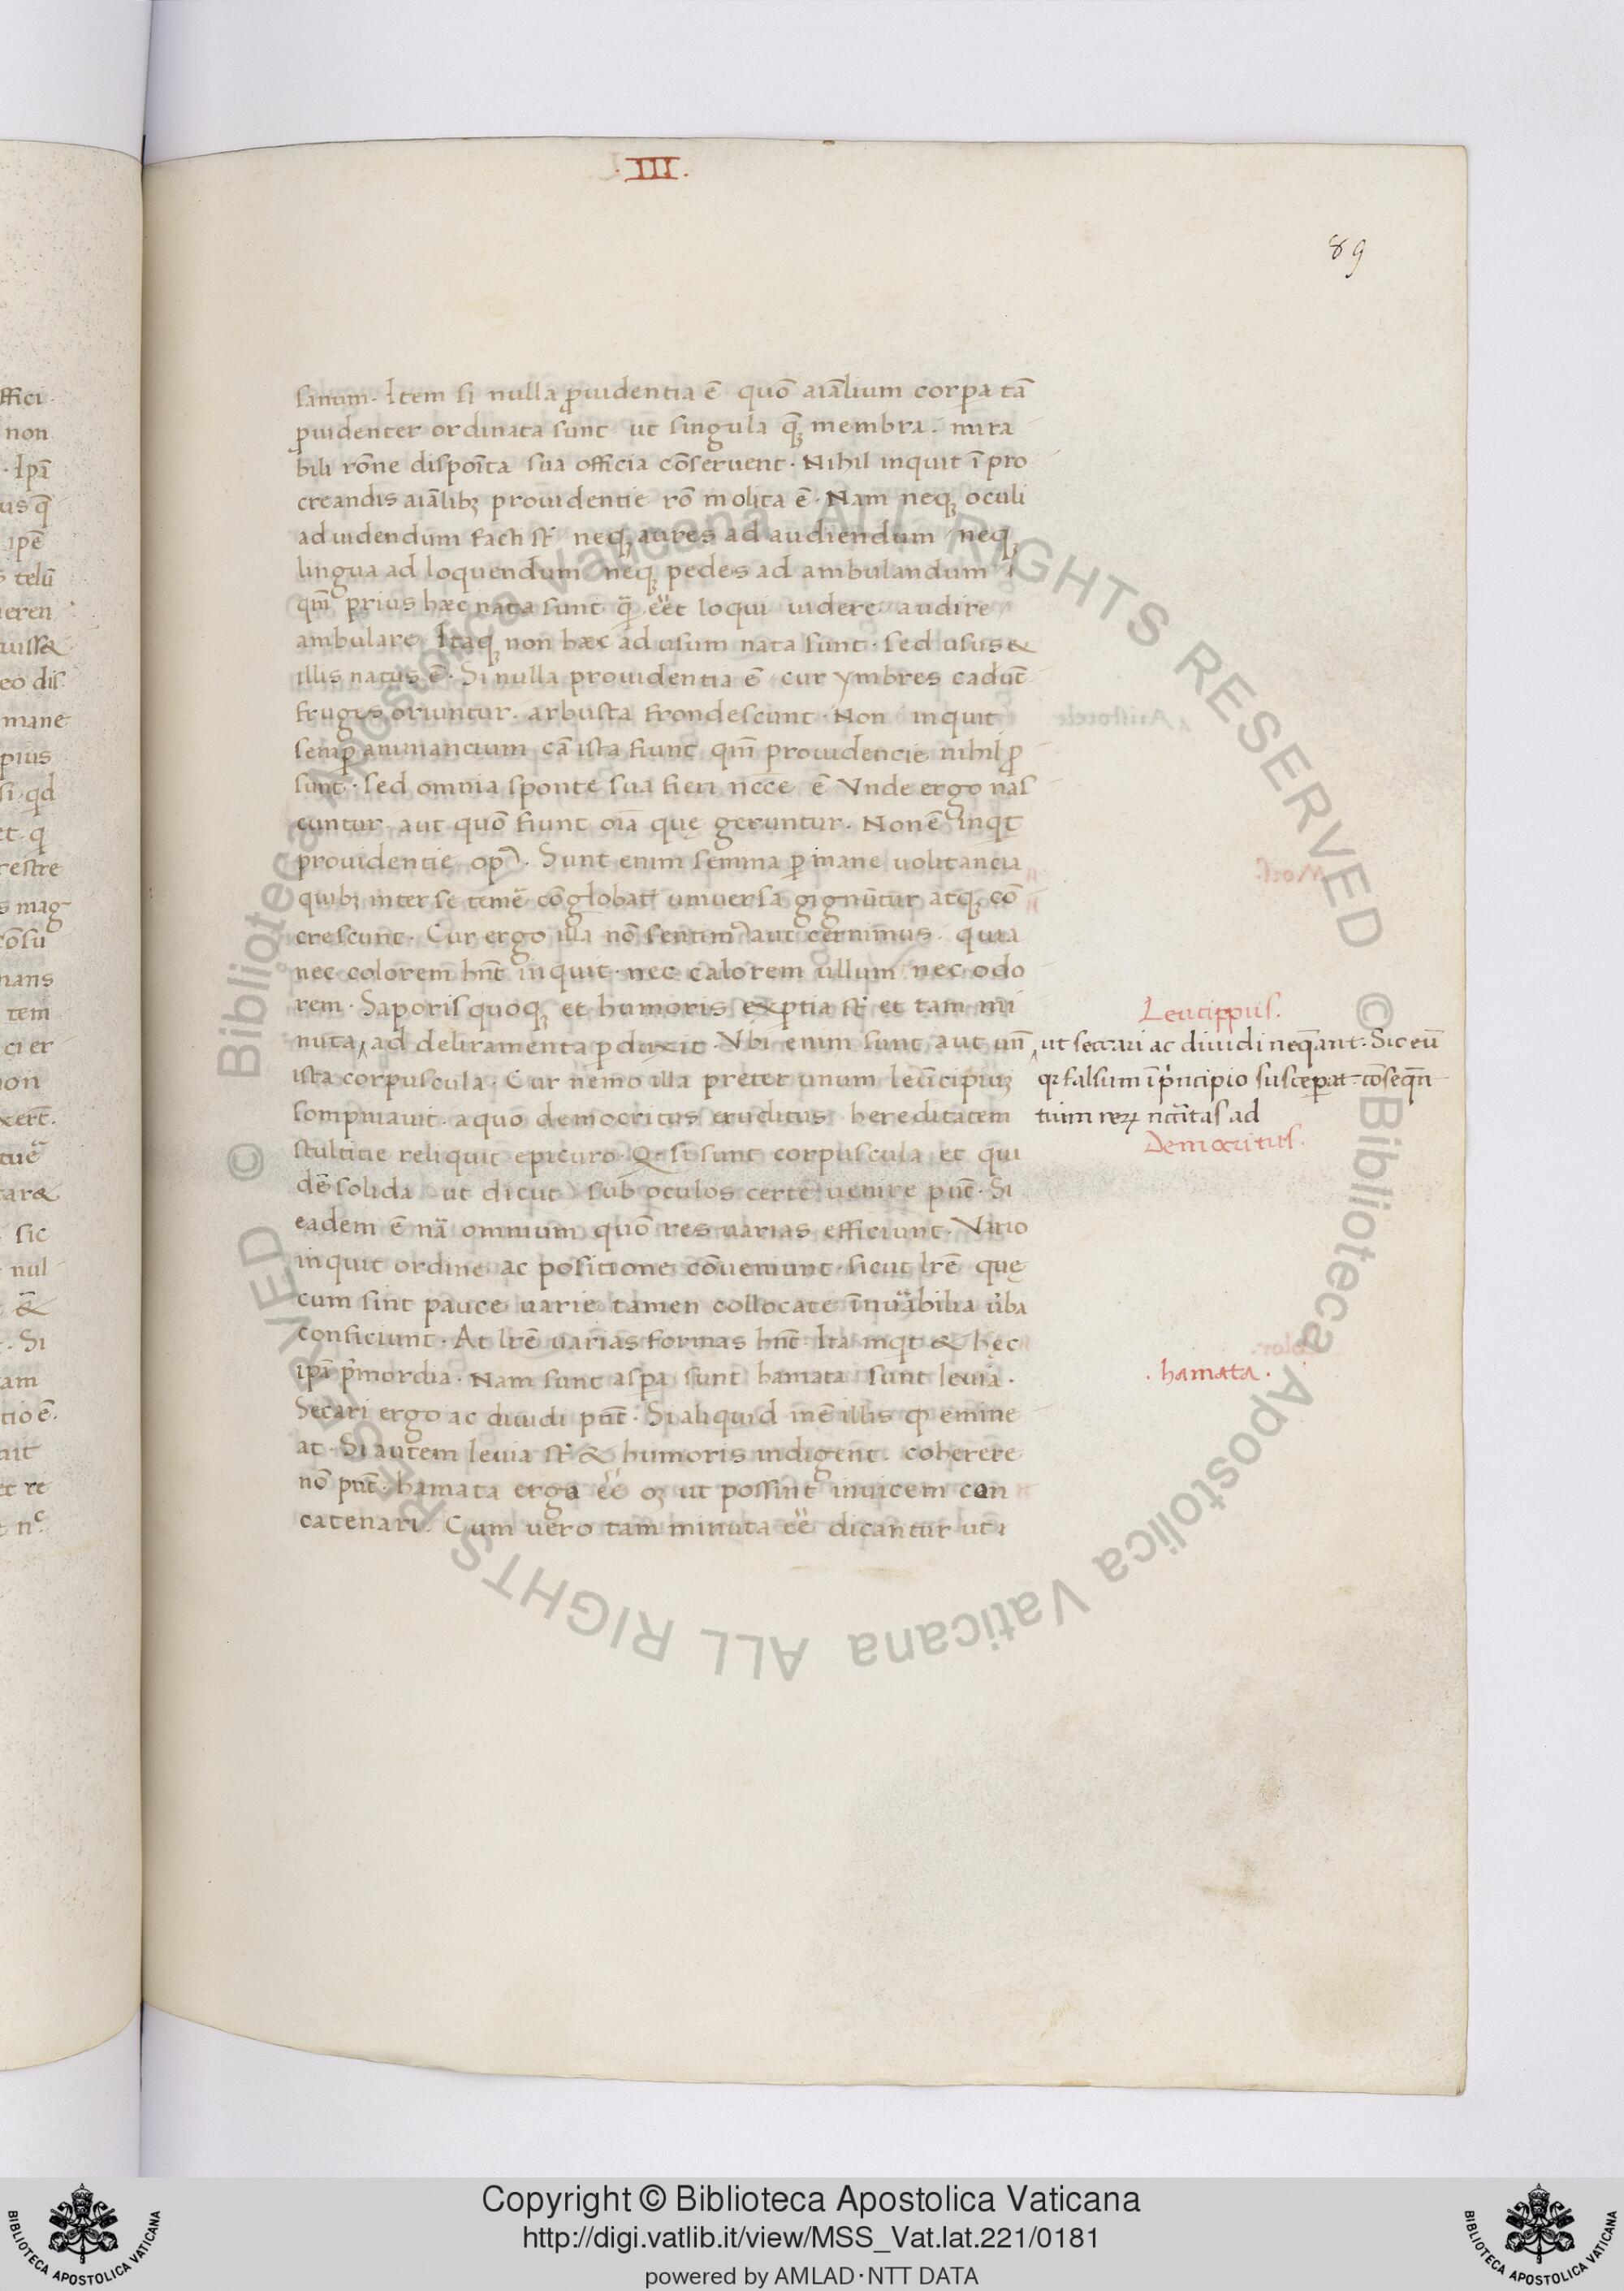 ·III·
89
sanum. Item si nulla ꝓuidentia ē quō aīalium corpa tā
ꝓuidenter ordinata sunt ut singula q̄ꝫ membra. mira
bili rōne dispoīta sua officia cōseruent. Nihil inquit ī pro
creandis aīalibꝫ prouidentie rō molita ē. Nam neqꝫ oculi
ad uidendum facti st̄ neqꝫ aures ad audiendum neqꝫ
lingua ad loquendum neqꝫ pedes ad ambulandum
qm̄ prius hæc nata sunt q̄ eēt loqui uidere audire
ambulare Itaqꝫ non hæc ad usum nata sunt. sed usus ex
illis natus ē. Si nulla prouidentia ē cur ymbres cadūt
fruges oriuntur. arbusta frondescunt. Non inquit
semꝑ animancium cā ista fiunt qm̄ prouidencie nihil ꝓ
sunt. sed omnia sponte sua fieri nc̄ce ē Vnde ergo nas
cuntur aut quō fiunt oīa quę geruntur. Non ē inqt
prouidentie opꝰ. Sunt enim semina ꝑ inane uolitancia
quibꝫ inter se temē cōglobatꝭ uniuersa gignūtur atqꝫ cō
crescunt. Cur ergo illa nō sentimꝰ aut cernimus. quia
nec colorem hn̄t inquit. nec calorem ullum nec odo
rem. Saporis quoqꝫ et humoris exꝑtia st̄ et tam mi
nuta ad deliramenta ꝑduxit. Vbi enim sunt aut un̄
ista corpuscula. Cur nemo illa preter unum leucipiuꝫ
sompniauit. a quo democritus eruditus hereditatem
stultitie reliquit epicuro. Q si sunt corpuscula et qui
dē solida ut dicūt sub oculos certe uenire pn̄t. Si
eadem ē nā omnium quō res uarias efficiunt. Vario
inquit ordine ac positione cōueniunt. sicut lrē quę
cum sint pauce uarie tamen collocate īnuābilia uba
conficiunt. At lrē uarias formas hn̄t. Ita inqt & hęc
ipā pmordia. Nam sunt aspa sunt hamata sunt leuia.
Secari ergo ac diuidi pn̄t. Si aliquid inē illis qꝫ emine
at. Si autem leuia st̄ & humoris indigent. coherere
nō pn̄t. hamata ergo eē oꝫ ut possint inuicem con
catenari. Cum uero tam minuta eē dicantur ut
Leucippus.
ut seccari ac diuidi neqānt. Sic eū
qꝫ falsum ī pncipio susceꝑat. cōseqn̄
tium reꝝ nc̄itas ad
Democritus.
. hamata .
Copyright © Biblioteca Apostolica Vaticana
http://digi.vatlib.it/view/MSS_Vat.lat.221/0181
powered by AMLAD·NTT DATA